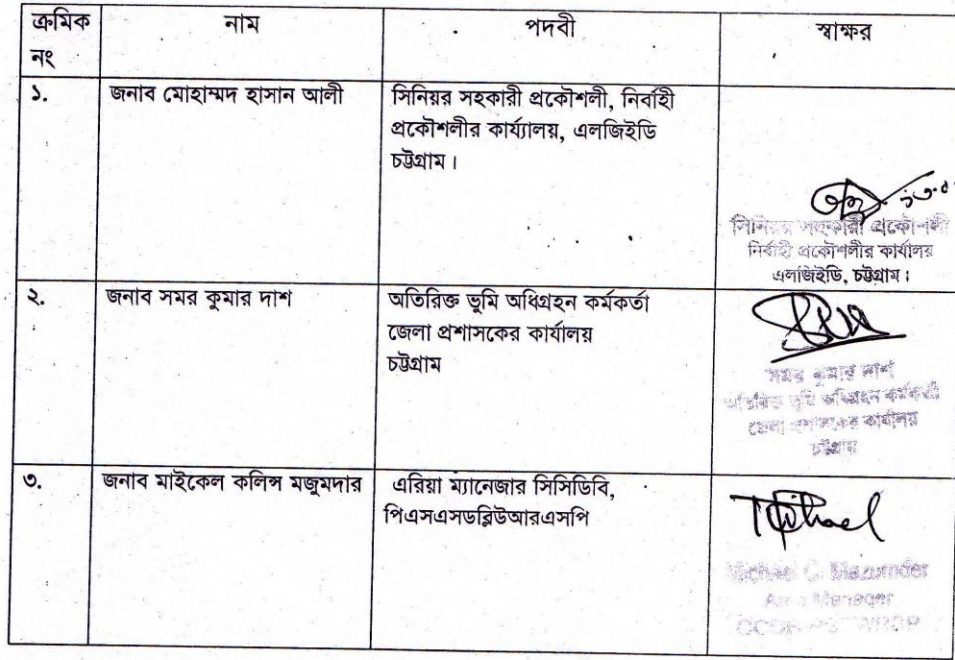 ক্রমিক নং	নাম	পদবী	স্বাক্ষর
১.	জনাব মোহাম্মদ হাসান আলী	সিনিয়র সহকারী প্রকৌশলী, নির্বাহী
প্রকৌশলীর কার্য্যালয়, এলজিইডি
চট্টগ্রাম।
সিনিয়র সহকারী প্রকৌশলী
নির্বাহী প্রকৌশলীর কার্যালয়
এলজিইডি, চট্টগ্রাম।
২.	জনাব সমর কুমার দাশ	অতিরিক্ত ভুমি অধিগ্রহন কর্মকর্তা
জেলা প্রশাসকের কার্যালয়
চট্টগ্রাম
সমর কুমার দাশ
অতিরিক্ত ভূমি অধিগ্রহন কর্মকর্তা
জেলা প্রশাসকের কার্যালয়
চট্টগ্রাম
৩.	জনাব মাইকেল কলিন্স মজুমদার	এরিয়া ম্যানেজার সিসিডিবি,
পিএসএসডব্লিউআরএসপি
Michael C. Mazumder
Area Manager